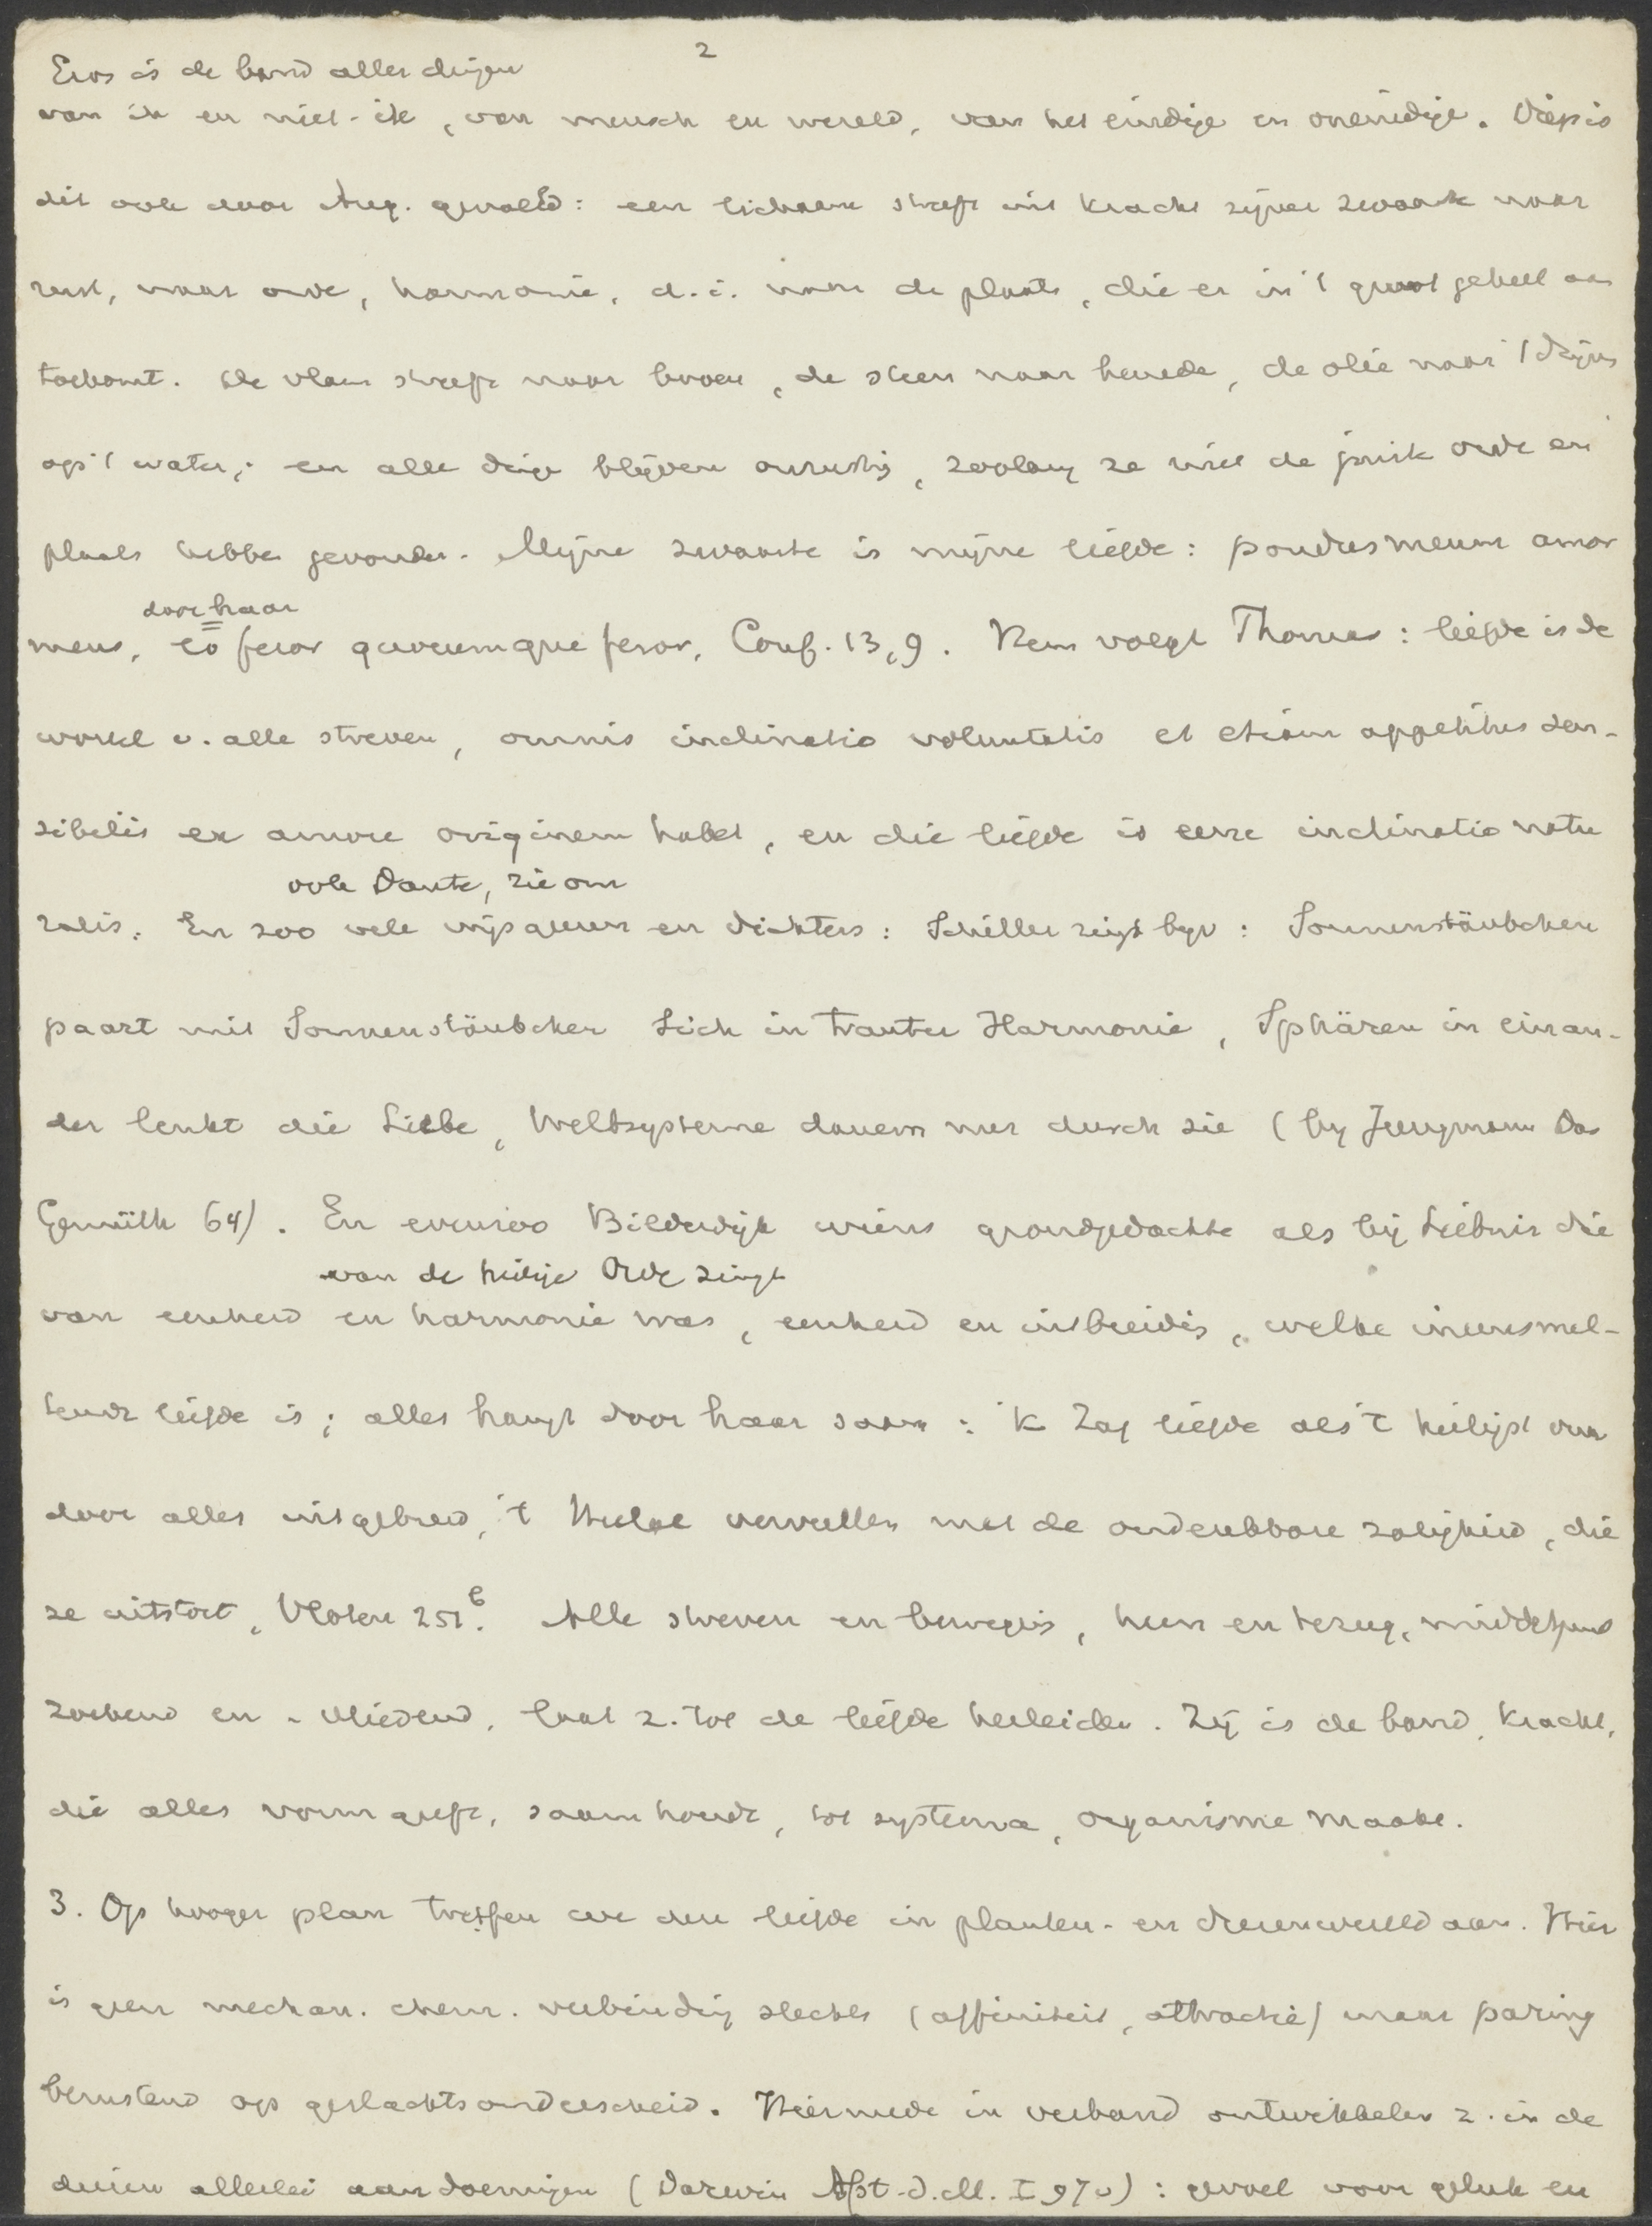 2
Eros is de band aller dingen
van ik en niet-ik, van mensch en wereld, van het eindige en oneindige. Diep is
dit ook door Aug. gevoeld: een lichaam streeft uit kracht zijner zwaarte naar
rust, naar orde, harmonie, d.i. naar de plaats, die er in 't groot geheel aan
toekomt. De vlam streeft naar boven, de steen naar beneden, de olie naar 't drijven
op 't water; en alle dingen blijven onrustig, zoolang ze niet de juiste orde en
plaats hebben gevonden. Mijne zwaarte is mijne liefde: pondus meum amor
door haar
meus, eo feror quocumque feror, Conf. 13,9. Hem volgt Thomas: liefde is de
wortel v. alle streven, omnis inclinatio voluntatis et etiam appetitus sen-
sibilis ex amore originem habet, en die liefde is eene inclinatio natu
ook Dante, zie om
ralis. En zoo vele wijsgeeren en dichters: Schiller zingt bijv: Sonnenstäubchen
paart mit Sonnenstäubchen Sich in trauter Harmonie, Sphären in einan-
der lenkt die Liebe, Weltsysteme dauern nur durch sie (bij Jungmann Das
Gemüth 64). En evenzoo Bilderdijk wiens grondgedachte als bij Leibniz die
van de heilige Orde zingt
van eenheid en harmonie was, eenheid en uitbreiding, welke ineensmel-
tende liefde is; alles hangt door haar saam: 'k Zag liefde als 't heiligst vuur
door alles uitgebreid, 't Heelal vervullen met de ondenkbare zaligheid, die
ze uitstort, Vloten 251b. Alle streven en beweging, heen en terug, middelpunt
zoekend en - vliedend, laat z. tot de liefde herleiden. Zij is de band, kracht,
die alles vorm geeft, saamhoudt, tot systema, organisme maakt.
3. Op hooger plan treffen we den liefde in planten- en dierenwereld aan. Hier
is geen mechan. chem. verbinding slechts (affiniteit, attractie) maar paring
berustend op geslachtsonderscheid. Hiermede in verband ontwikkelen z. in de
dieren allerlei aandoeningen (Darwin Abst. d. M. I 97v): gevoel voor geluk en